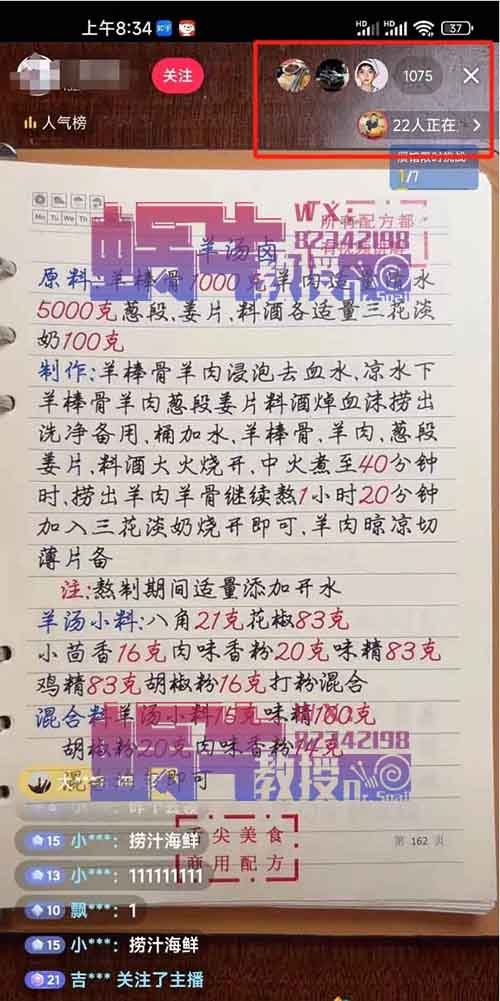 上午8:34
37
关注
1075
人气榜
22人正在
展馆限时挑战
1/7
Mo Tu We Th
羊汤卤
所有配方都
WX:
82342198
蜗牛
教授
Mr. Snail
原料:羊棒骨1000克羊肉适量清水
5000克葱段,姜片,料酒各适量三花淡
奶100克
制作:羊棒骨羊肉浸泡去血水,凉水下
羊棒骨羊肉葱段姜片料酒焯血沫捞出
洗净备用,桶加水,羊棒骨,羊肉,葱段
姜片,料酒大火烧开,中火煮至40分钟
时,捞出羊肉羊骨继续熬1小时20分钟
加入三花淡奶烧开即可,羊肉晾凉切
薄片备
注:熬制期间适量添加开水
羊汤小料:八角21克花椒83克
小茴香16克肉味香粉20克味精83克
鸡精83克胡椒粉16克打粉混合
混合料羊汤小料15克味精180克
胡椒粉20克肉味香粉14克
即可
82342198
蜗牛
教授
Mr. Snail
舌尖美食
商用配方
第 162 页
15 小***：捞汁海鲜
13 小***：111111111
10 飘***：1
15 小***：捞汁海鲜
21 吉*** 关注了主播